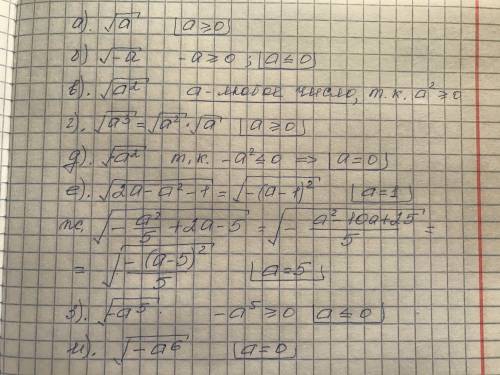 а). √a [a≥0]
б). √-a -a≥0; [a≤0]
в). √a² a - любое число, т.к. a²≥0
г). √a³ = √a² · √a [a≥0]
д). √-a² т.к. -a²≤0 => [a=0]
е). √2a-a²-1 = √-(a-1)² [a=1]
ж. √-a²/5 +2a-5 = √-a²+10a+25/5 =
= √-(a-5)²/5 [a=5]
з). √-a⁵. -a⁵≥0 [a≤0]
и). √-a⁶ [a=0]